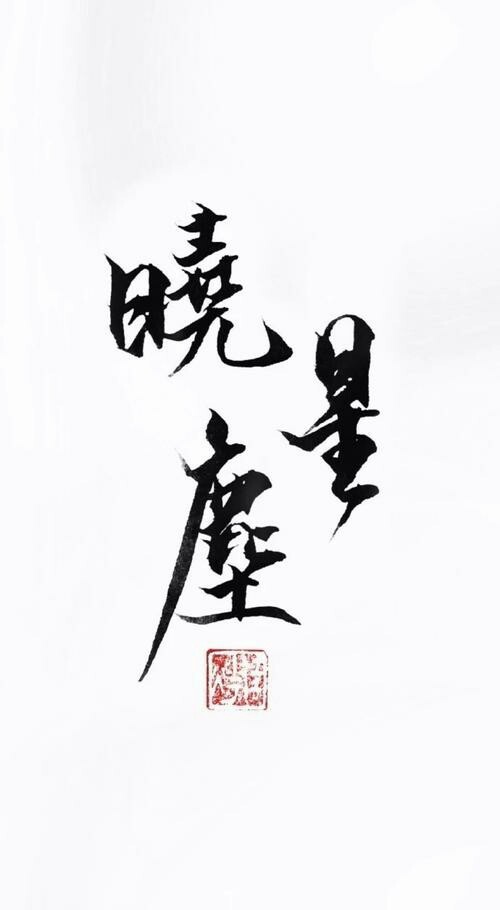 曉
星
塵